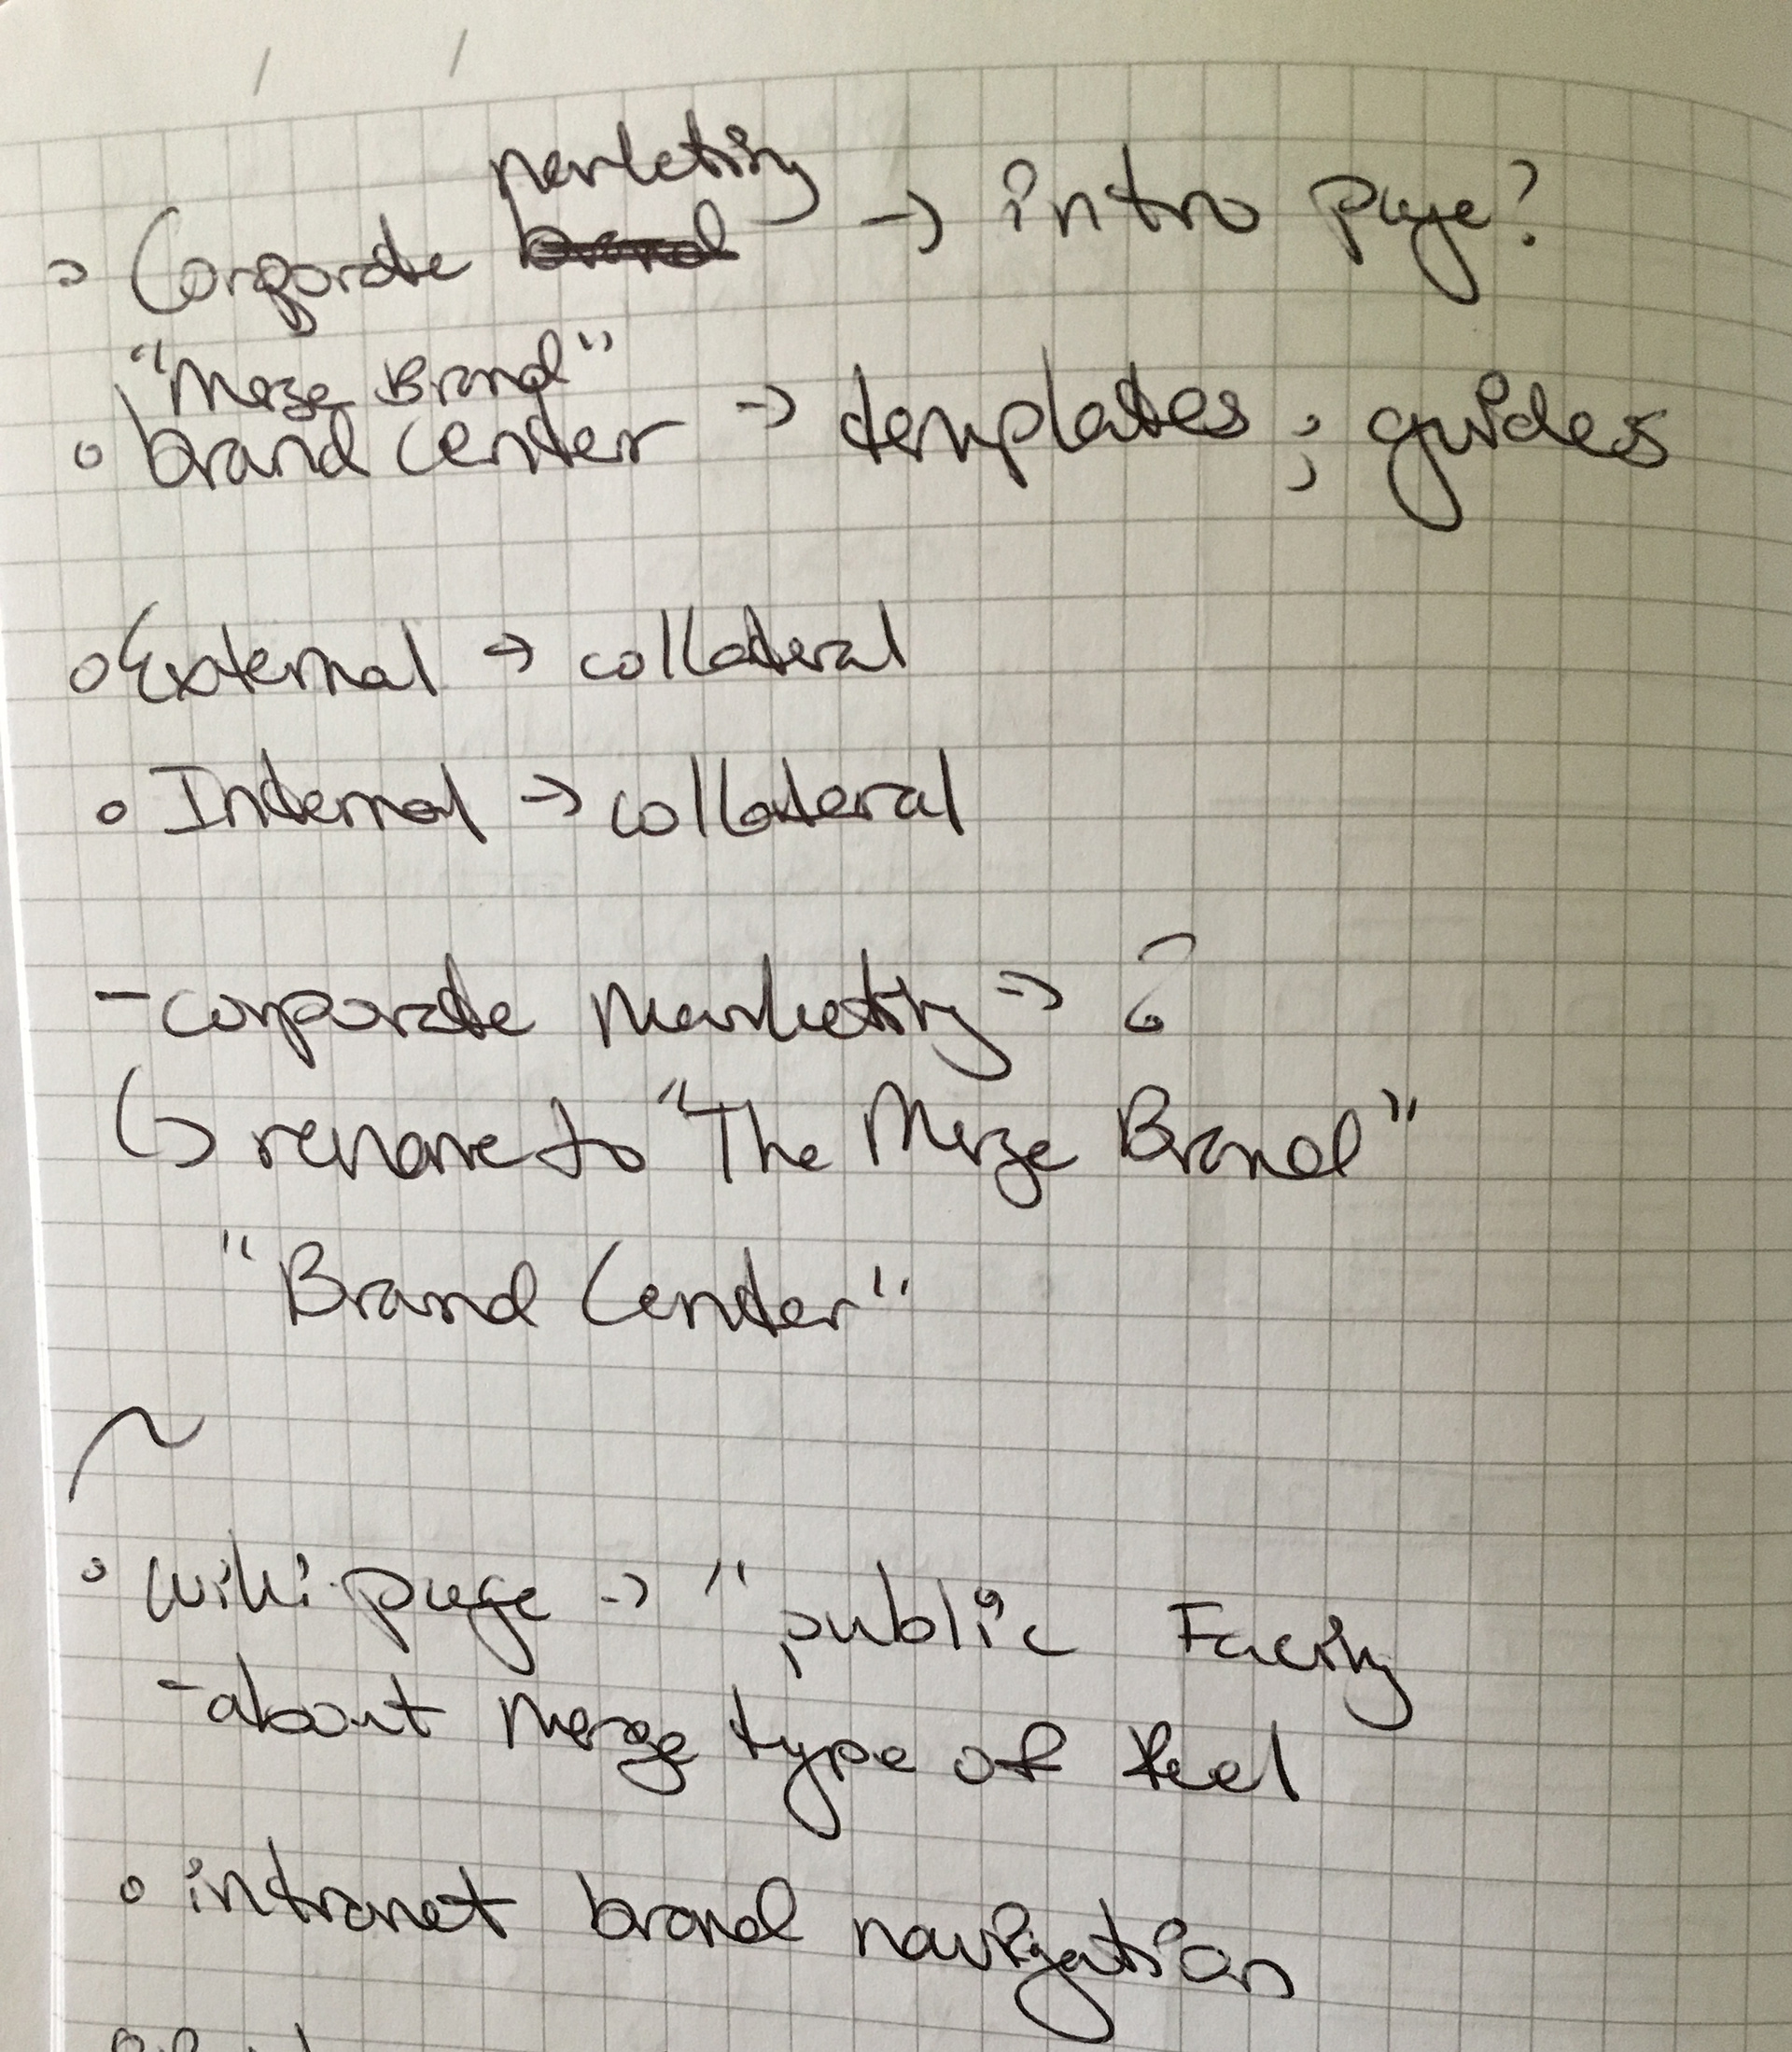 marketing
◦ Corporate brand → intro page?
"Merge Brand"
◦ brand center → templates ; guides
◦ External → collateral
◦ Internal → collateral
- corporate marketing → ?
↳ rename to "The Merge Brand"
"Brand Center"
~
◦ wiki page → " public Facing
- about Merge type of feel
◦ intranet brand navigation